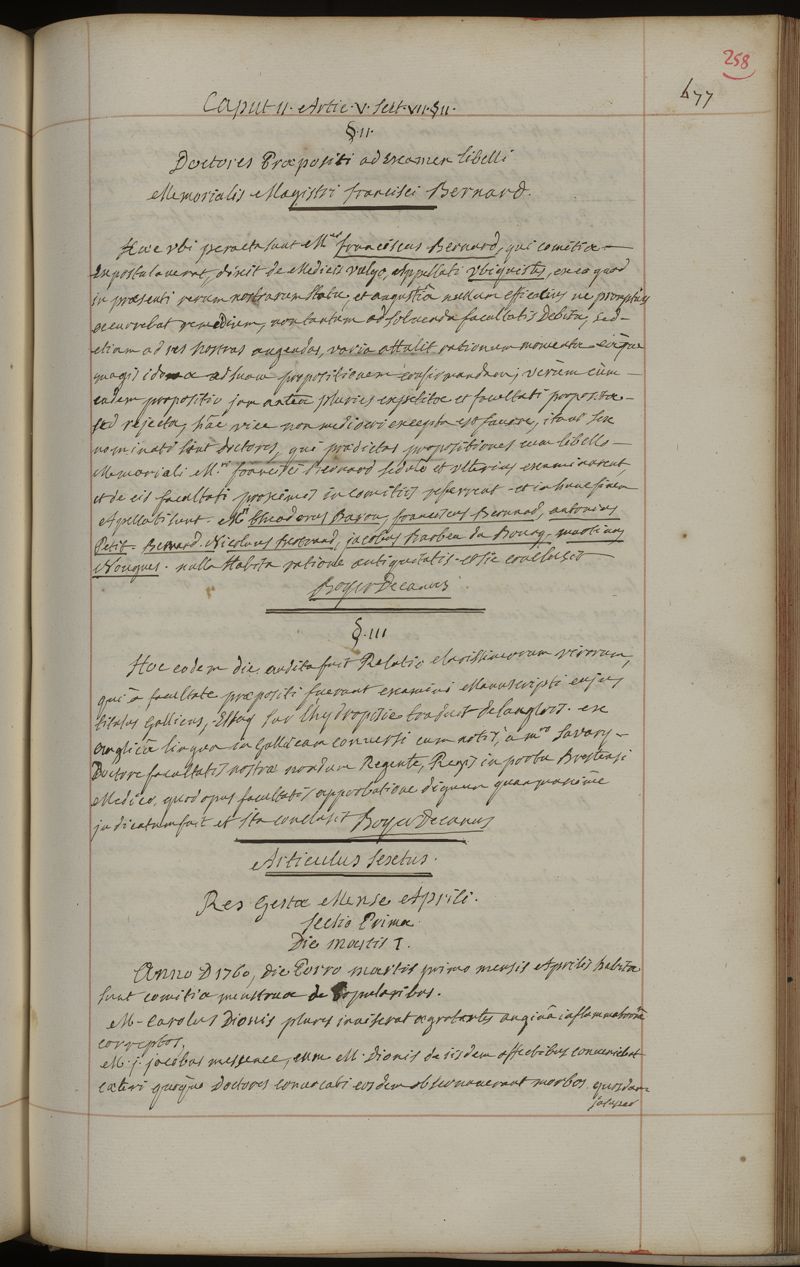 258
677
Caput II. Artic. V. Sect. VII. §II.
§.II.
Doctores Præpositi ad Examen libelli
Memorialis Magistri francisci Bernard.
Hæc ubi peracta sunt Mer franciscus Bernard, qui comitia
expostulaverat, dixit de Medicis vulgo, Appellati ubiquistes, ex eo quod
in præsenti rerum nostrarum statu, et angustiâ nullum efficacius ne promptius
occurrebat remedium, non tantum ad solvenda facultatis Debita, sed
etiam ad res nostras augendas, varia attulit rationum momenta eâque
magis idonea ad suam propositionem confirmandam; verùm cum
eadem propositio jam anteà pluries explicita et facultati proposita
sed rejecta, hâc vice non mediocri excepta est favore, ita ut sex
nominati sint doctores, qui prædictas propositiones cum libello
Memoriali Mri francisci Bernard sedulò et ulterius examinarent,
et de eis facultati proximis in comitiis referrent et in hunc finem
Apellati sunt. Mri theodorus Baron, franciscus Bernard, antonius
Petit. Bernard. Nicolaus Bertrand, jacobus Barbeu du Bourg, martinus
Nouguez. nulla habita ratione antiquitatis. et sic conclusit
Boyer Decanus
§.III
Hoc eodem die audita fuit Relatio clarissimorum virorum,
qui à facultate præpositi fuerant examini Manuscripti cujus
titulus Gallicus, Essay sur l'hydropisie traduit de l'anglois. ex
Anglicâ linguâ in Gallicam conversi cum notis, à mro Savary
Doctore facultatis nostræ nondum Regente, Regis in portu Brestensi
Medico, quod opus facultatis approbatione dignum quam maximè
judicatum fuit et ita conclusit Boyer Decanus
Articulus Sextus.
Res Gestæ Mense Aprili.
Sectio Prima
Die Martis I.
Anno D 1760, die Porro martis primo mensis Aprilis habita
sunt comitia menstrua de Popularibus.
M. Carolus Dionis plures inviserat ægrotantes anginâ inflammatoriâ
correptos.
M. j. jacobus messence, cum M. Dionis de iisdem affectibus conveniebat
cæteri quoque Doctores convocati eosdem observaverant morbos quosdam